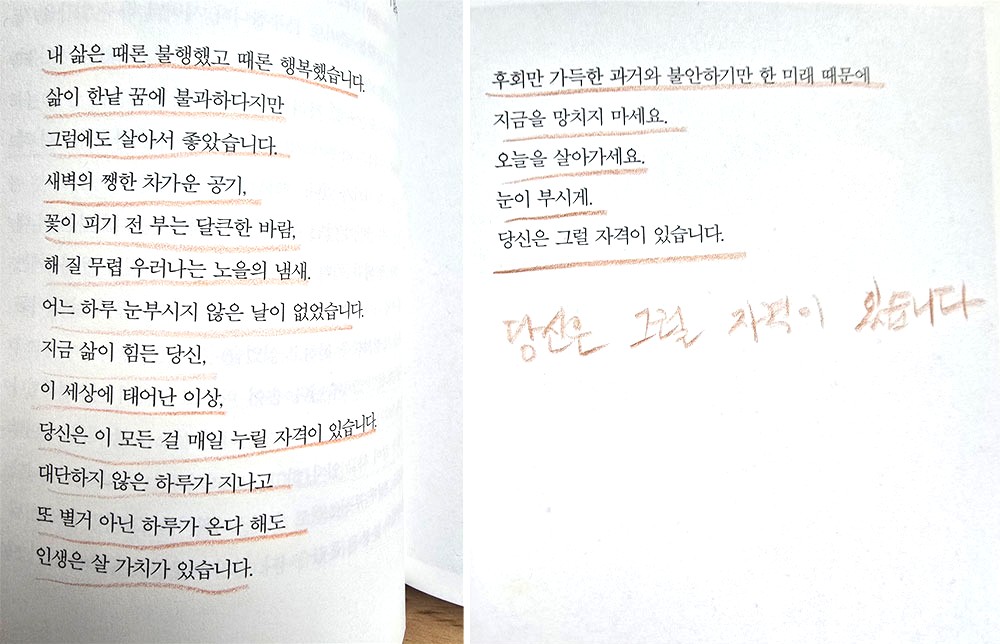 내 삶은 때론 불행했고 때론 행복했습니다.
삶이 한낱 꿈에 불과하다지만
그럼에도 살아서 좋았습니다.
새벽의 쨍한 차가운 공기,
꽃이 피기 전 부는 달큰한 바람,
해 질 무렵 우러나는 노을의 냄새.
어느 하루 눈부시지 않은 날이 없었습니다.
지금 삶이 힘든 당신,
이 세상에 태어난 이상,
당신은 이 모든 걸 매일 누릴 자격이 있습니다.
대단하지 않은 하루가 지나고
또 별거 아닌 하루가 온다 해도
인생은 살 가치가 있습니다.
후회만 가득한 과거와 불안하기만 한 미래 때문에
지금을 망치지 마세요.
오늘을 살아가세요.
눈이 부시게.
당신은 그럴 자격이 있습니다.
당신은 그럴 자격이 있습니다